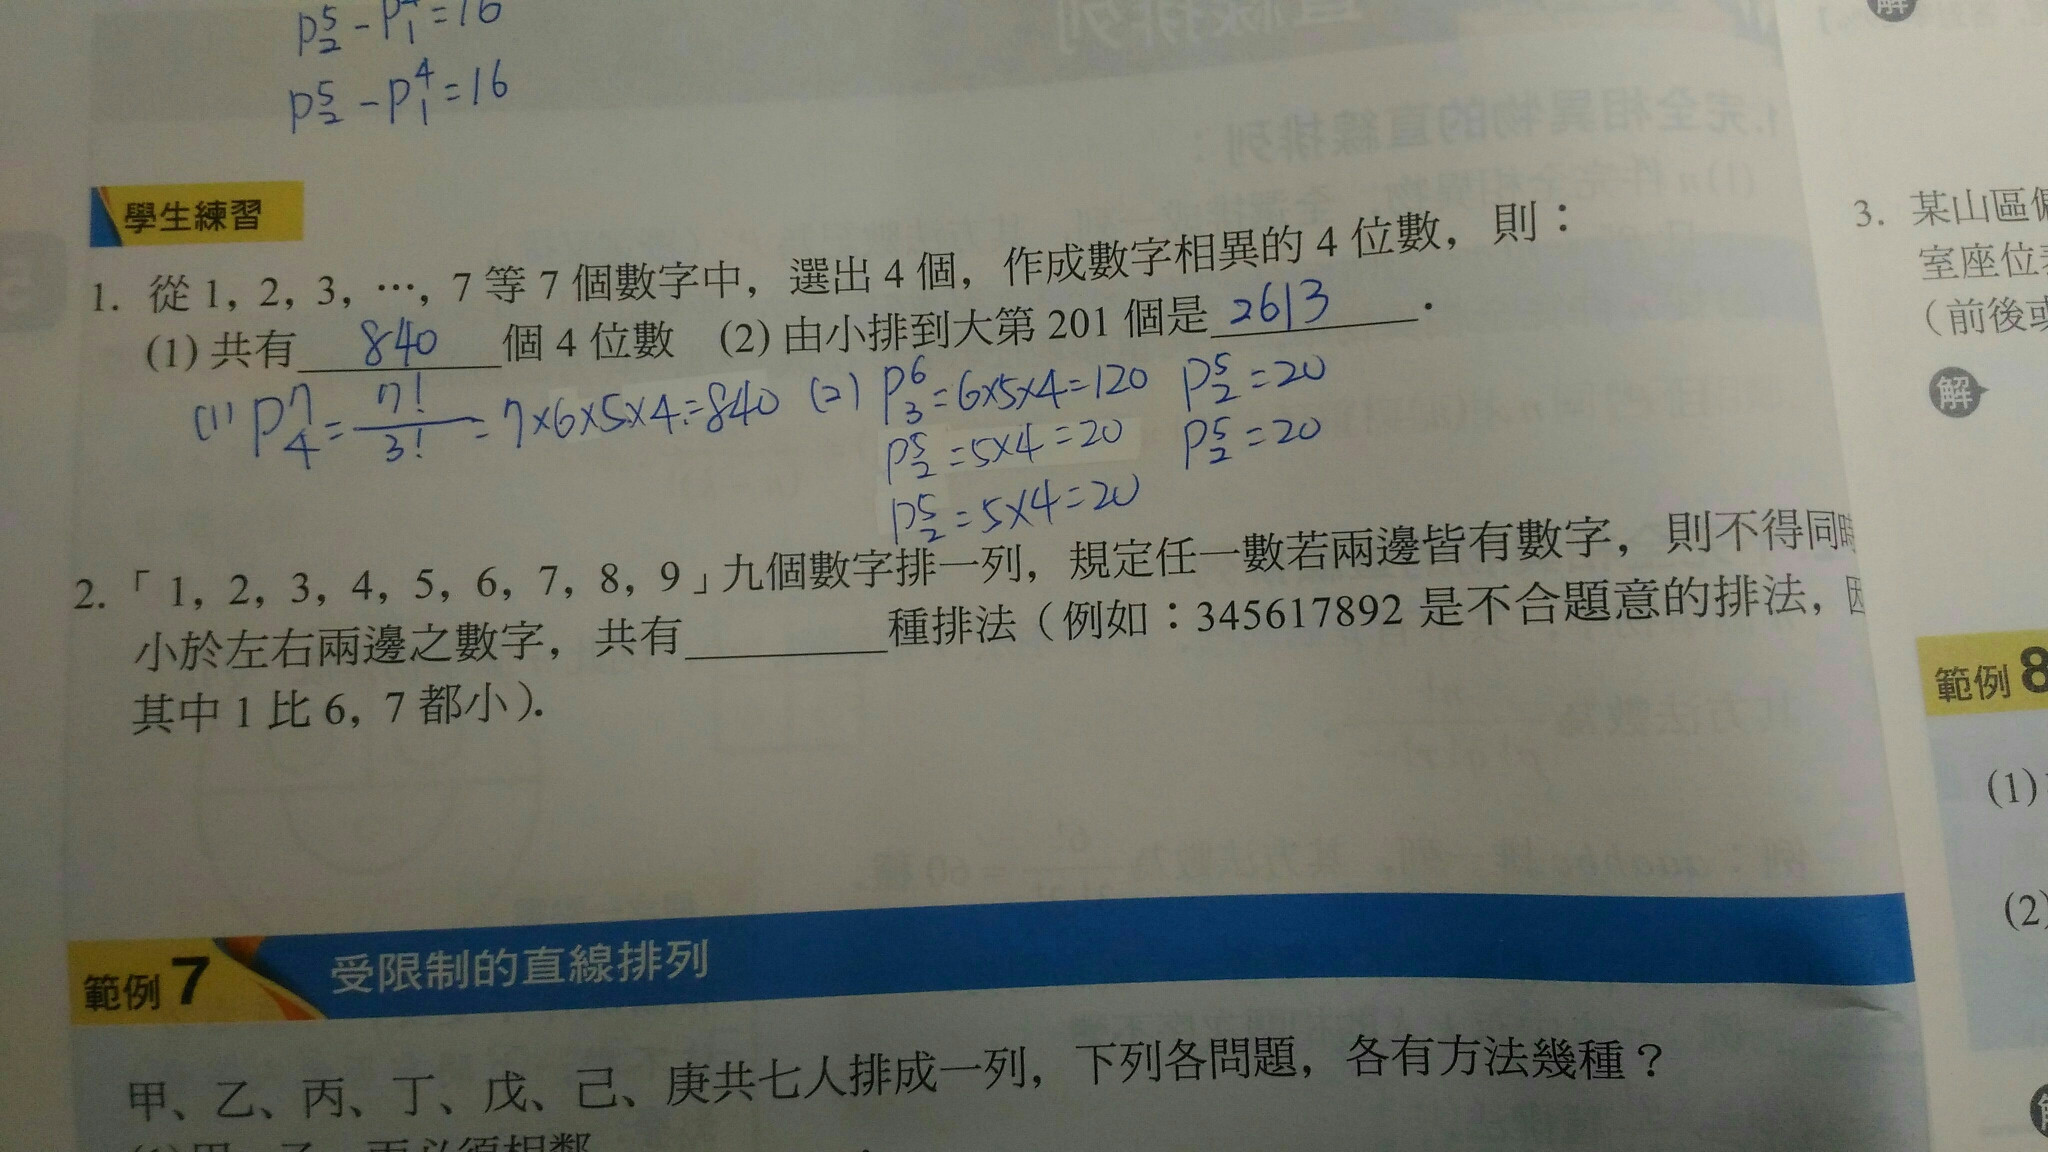 P⁵₂ - P⁴₁ = 16
P⁵₂ - P⁴₁ = 16
學生練習
1. 從 1, 2, 3, …, 7 等 7 個數字中, 選出 4 個, 作成數字相異的 4 位數, 則：
(1) 共有 840 個 4 位數 (2) 由小排到大第 201 個是 2613 .
(1) P⁷₄ = 7!/3! = 7×6×5×4 = 840 (2) P⁶₃ = 6×5×4 = 120 P⁵₂ = 20
P⁵₂ = 5×4 = 20 P⁵₂ = 20
P⁵₂ = 5×4 = 20
2. 「1, 2, 3, 4, 5, 6, 7, 8, 9」九個數字排一列, 規定任一數若兩邊皆有數字, 則不得同時
小於左右兩邊之數字, 共有________種排法（例如：345617892 是不合題意的排法, 因
其中 1 比 6, 7 都小）.
範例 7 受限制的直線排列
甲、乙、丙、丁、戊、己、庚共七人排成一列, 下列各問題, 各有方法幾種？
3. 某山區偏
室座位表
（前後或
解
範例 8
(1)
(2)